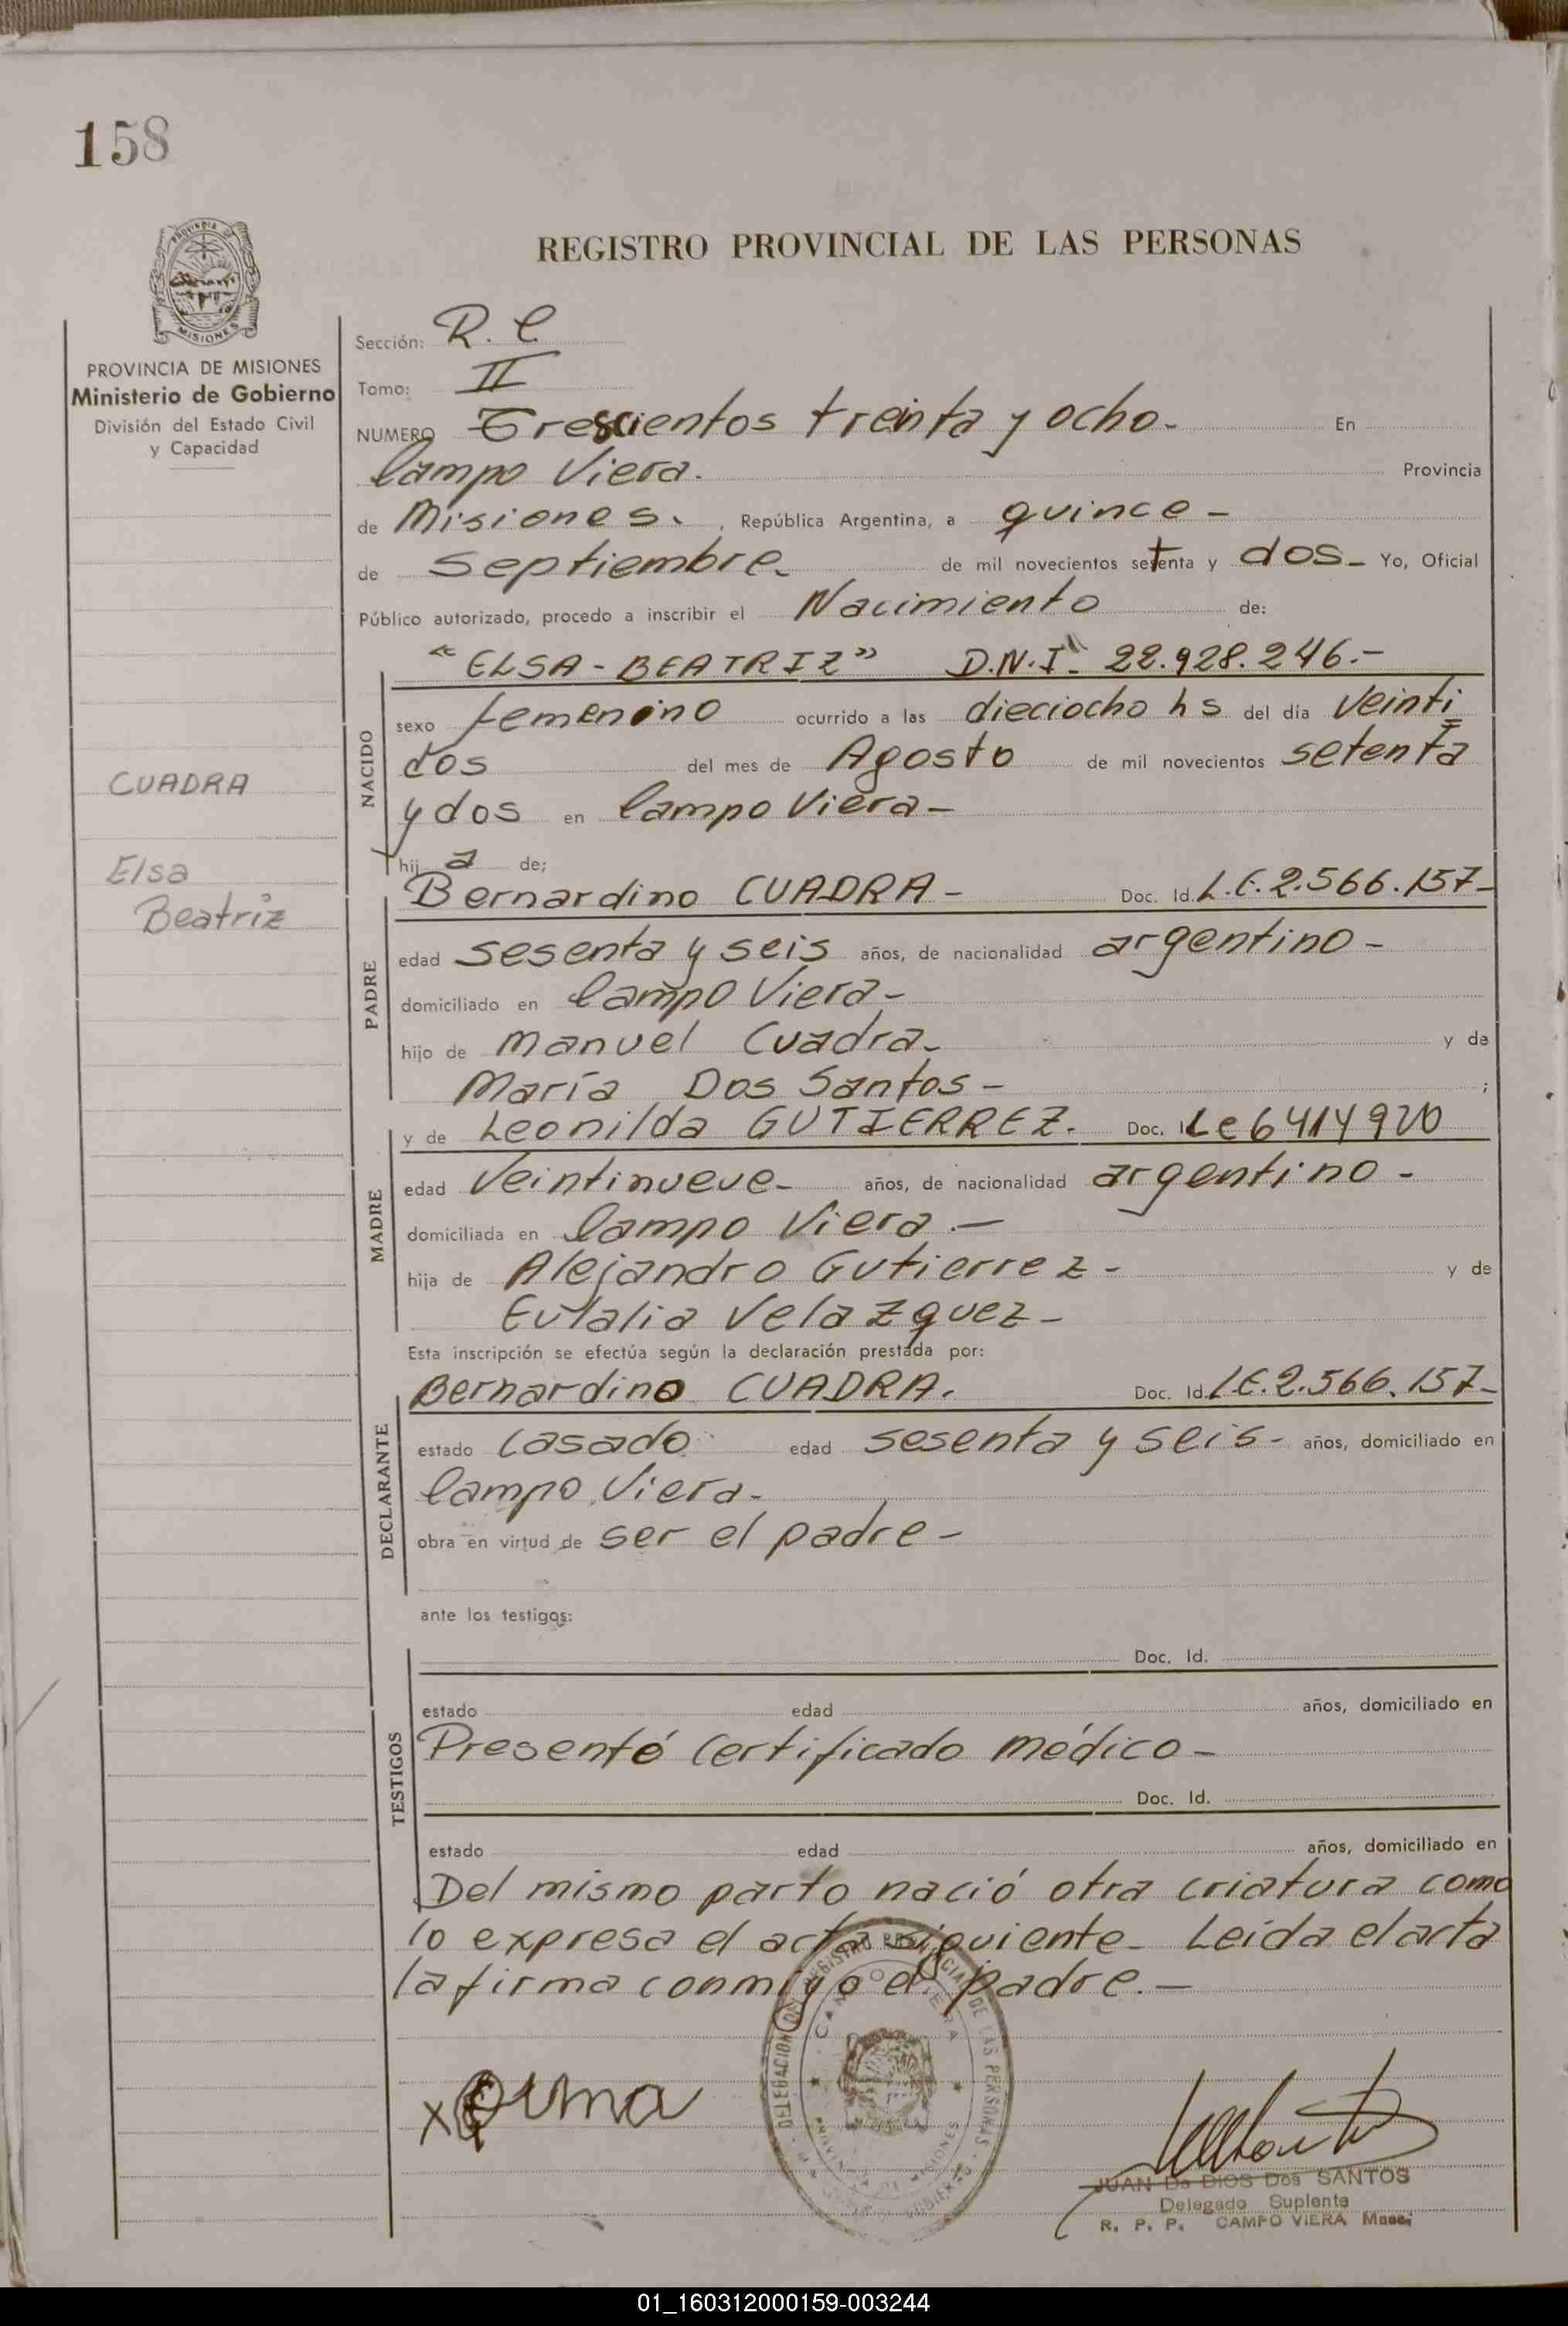 158
REGISTRO PROVINCIAL DE LAS PERSONAS
MISIONES
PROVINCIA DE MISIONES
Ministerio de Gobierno
División del Estado Civil
y Capacidad
CUADRA
Elsa
Beatriz
Sección: R. C
Tomo: II
NUMERO Trescientos treinta y ocho- En
Campo Viera. Provincia
de Misiones. , República Argentina, a quince -
de Septiembre- de mil novecientos setenta y dos- Yo, Oficial
Público autorizado, procedo a inscribir el Nacimiento de:
"ELSA - BEATRIZ" D.N.I. 22.928.246.-
NACIDO
sexo femenino ocurrido a las dieciocho hs del día veinti
dos del mes de Agosto de mil novecientos setenta
y dos en Campo Viera -
hij a de;
Bernardino CUADRA - Doc. Id. L.E. 2.566.157-
PADRE
edad sesenta y seis años, de nacionalidad argentino -
domiciliado en Campo Viera-
hijo de Manuel Cuadra- y de
María Dos Santos - ;
y de Leonilda GUTIERREZ. Doc. Lc 6414920
MADRE
edad Veintinueve- años, de nacionalidad argentino -
domiciliada en Campo Viera.-
hija de Alejandro Gutierrez - y de
Eulalia Velazquez-
Esta inscripción se efectúa según la declaración prestada por:
Bernardino CUADRA. Doc. Id. L.E. 2.566.157-
DECLARANTE
estado Casado edad sesenta y seis- años, domiciliado en
Campo Viera-
obra en virtud de ser el padre -
ante los testigos:
Doc. Id.
TESTIGOS
estado edad años, domiciliado en
Presentó Certificado médico -
Doc. Id.
estado edad años, domiciliado en
Del mismo parto nació otra criatura como
lo expresa el acta siguiente- Leída el acta
la firma conmigo el padre.-
DELEGACION DEL REGISTRO PROVINCIAL DE LAS PERSONAS
CAMPO VIERA
PROVINCIA DE MISIONES
JUAN De DIOS Dos SANTOS
Delegado Suplente
R. P. P. CAMPO VIERA Mnes.
01_160312000159-003244